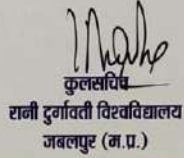 कुलसचिव
रानी दुर्गावती विश्वविद्यालय
जबलपुर (म.प्र.)